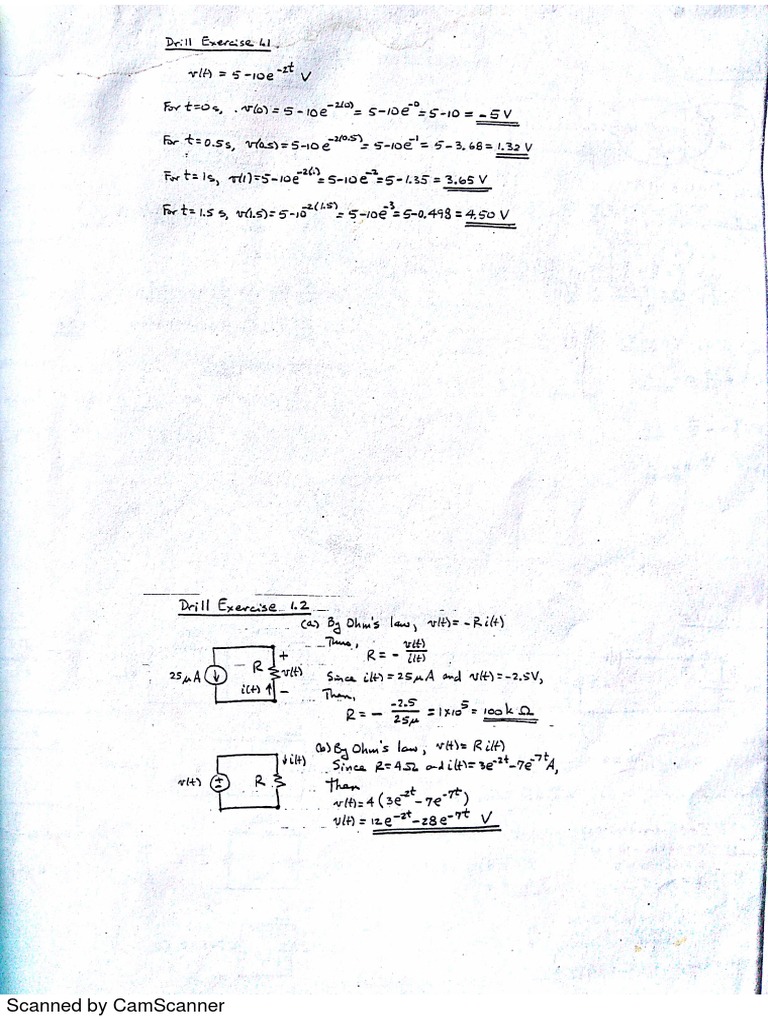 Drill Exercise 1.1
v(t) = 5 - 10e^-2t V
For t=0 s, v(0) = 5 - 10e^-2(0) = 5 - 10e^-0 = 5 - 10 = -5 V
For t=0.5s, v(0.5) = 5 - 10e^-2(0.5) = 5 - 10e^-1 = 5 - 3.68 = 1.32 V
For t=1s, v(1) = 5 - 10e^-2(1) = 5 - 10e^-2 = 5 - 1.35 = 3.65 V
For t=1.5 s, v(1.5) = 5 - 10^-2(1.5) = 5 - 10e^-3 = 5 - 0.498 = 4.50 V
Drill Exercise 1.2
(a) By Ohm's law, v(t) = -R i(t)
Thus,
R = - v(t)/i(t)
Since i(t) = 25 μA and v(t) = -2.5V,
Then,
R = - -2.5/25μ = 1x10^5 = 100 k Ω
25 μA
R
+
v(t)
-
i(t)
(b) By Ohm's law, v(t) = R i(t)
Since R=4Ω and i(t) = 3e^-2t - 7e^-7t A,
then
v(t) = 4 (3e^-2t - 7e^-7t)
v(t) = 12e^-2t - 28e^-7t V
v(t)
+
-
R
i(t)
Scanned by CamScanner